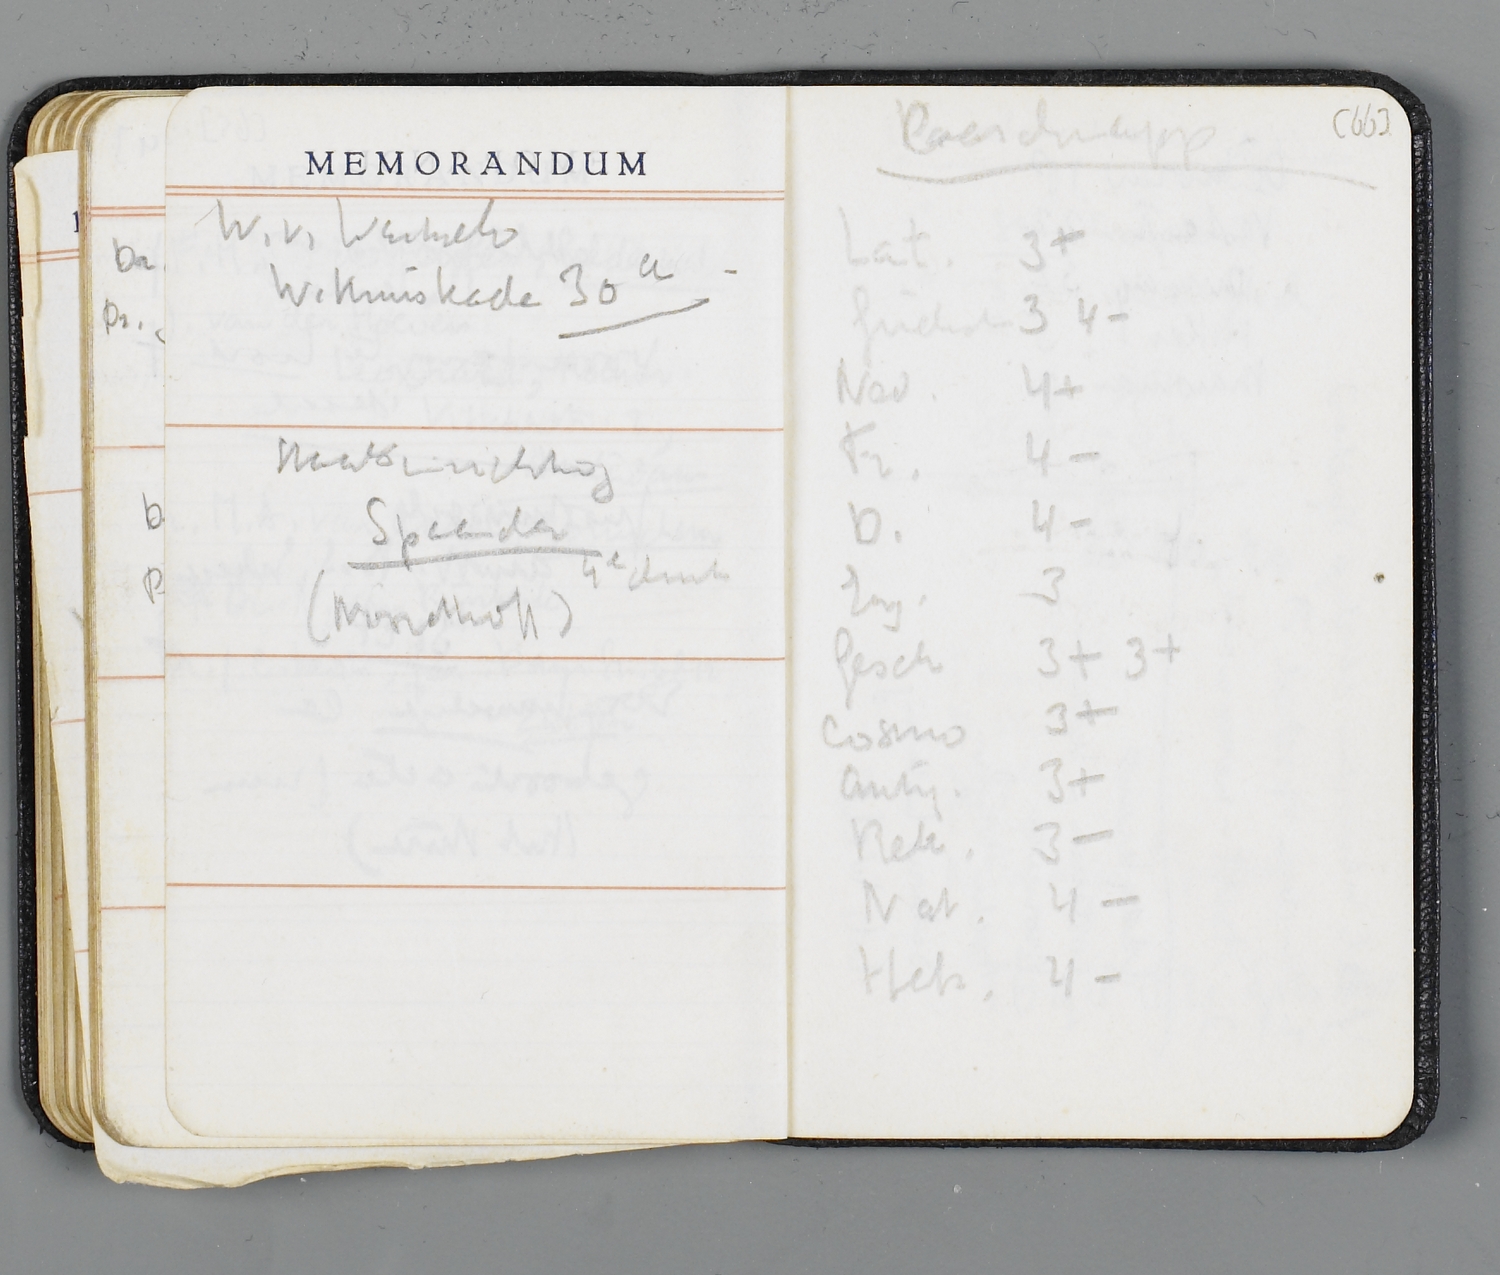 MEMORANDUM
W. v.
W. Kruiskade 30 a
Staatsinrichting
Spaander
4e druk
(Noordhoff)
[66]
Lat. 3+
3 4-
Ned. 4+
Fr. 4-
D. 4-
Eng. 3
Gesch 3+ 3+
Cosmo 3+
Antiq. 3+
3-
Nat. 4-
Heb. 4-
Da.
Pr.
D
P